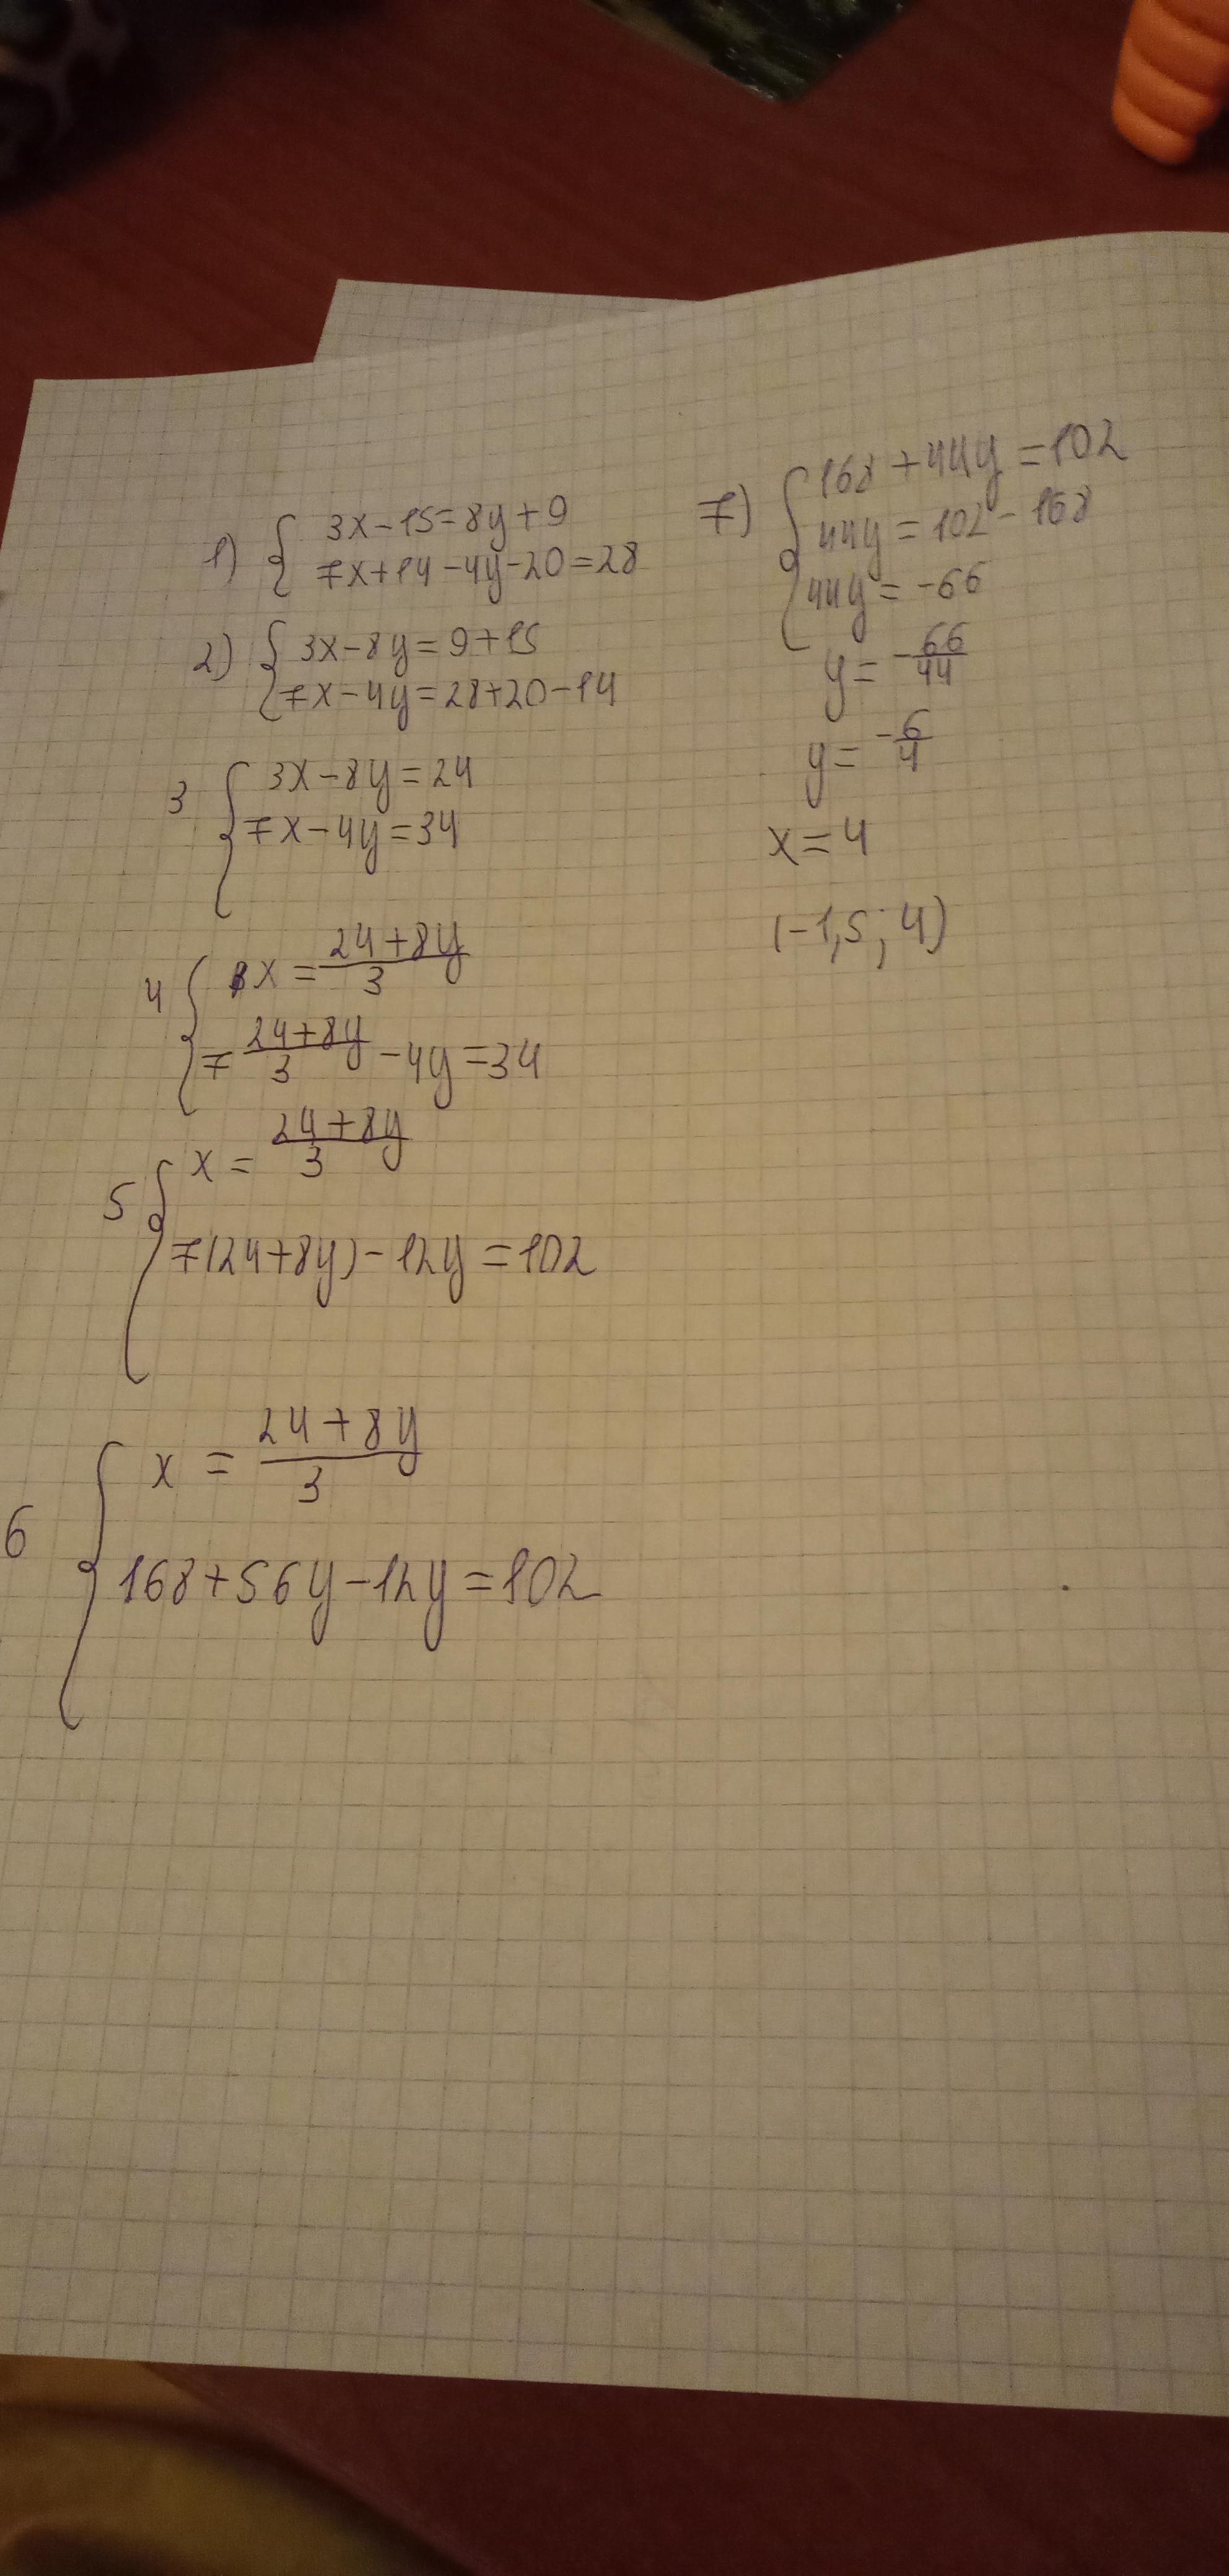 1) { 3x-15=8y+9
7x+14-4y-20=28
2) { 3x-8y=9+15
7x-4y=28+20-14
3 { 3x-8y=24
7x-4y=34
4 { x = (24+8y)/3
7 (24+8y)/3 -4y=34
5 { x = (24+8y)/3
7(24+8y)-12y=102
6 { x = (24+8y)/3
168+56y-12y=102
7) { 168+44y=102
44y=102-168
44y=-66
y=-66/44
y=-6/4
x=4
(-1,5; 4)